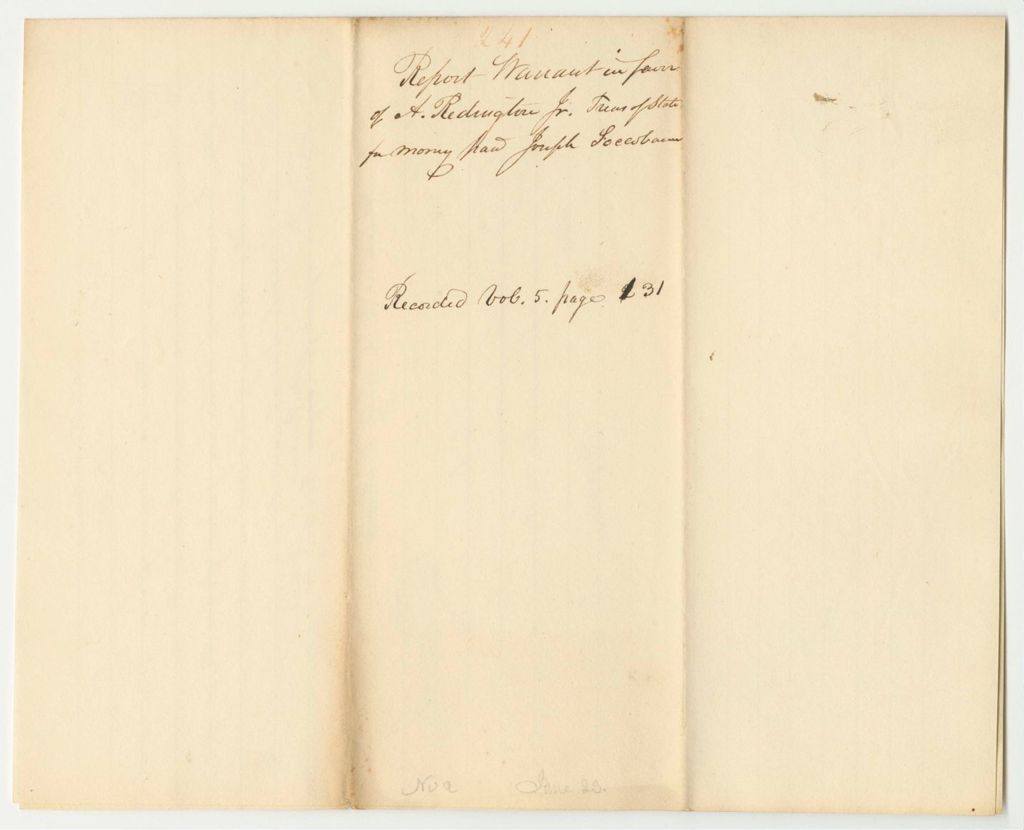 241
Report Warrant in favor
of A. Redington Jr. Treas of State
for money paid Joseph Soccobason
Recorded Vol. 5. page 131
June 23.